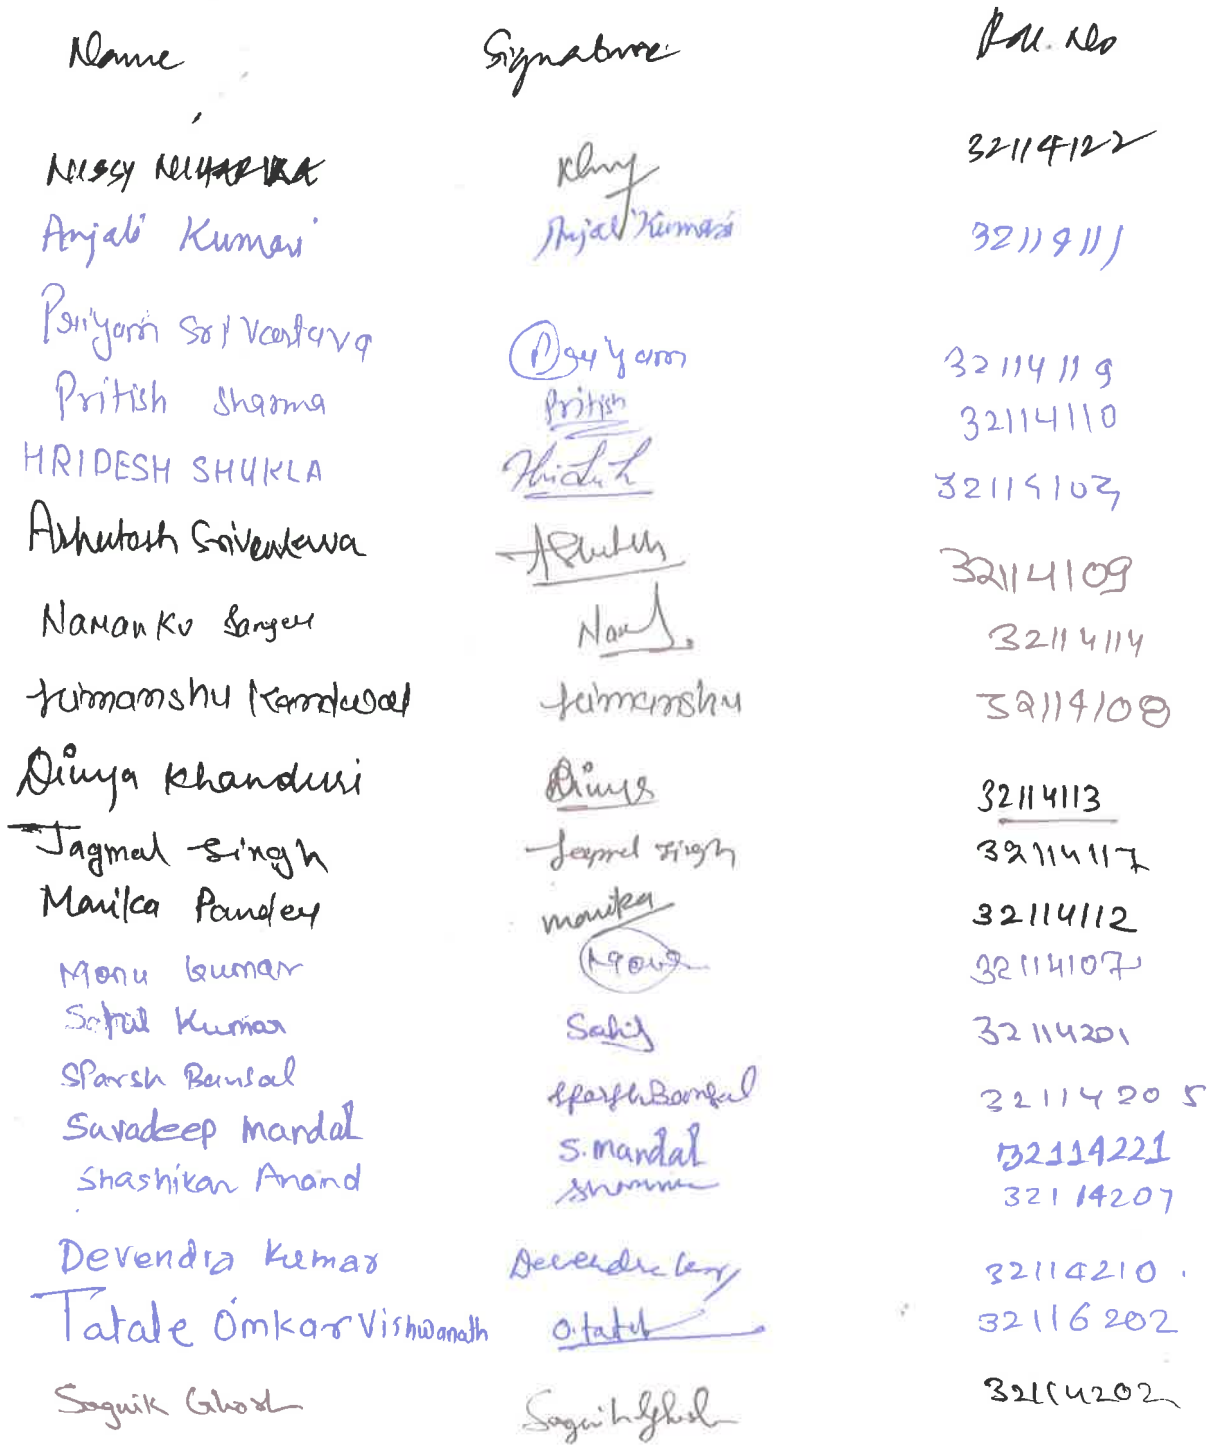 Name Signature Roll. No
NISSY NIHARIKA 32114122
Anjali Kumari Anjali Kumari 32114111
Priyam Srivastava Priyam 32114119
Pritish Sharma Pritish 32114110
HRIDESH SHUKLA 32114103
Ashutosh Srivastava Ashutosh 32114109
NamanKr Naman 32114114
Himanshu Kandwal Himanshu 32114108
Divya Khanduri Divya 32114113
Jagmal Singh Jagmal Singh 32114117
Manika Pandey manika 32114112
Monu Kumar Monu 32114107
Sahil Kumar Sahil 32114201
SParsh Bansal SparshBansal 32114205
Suvadeep Mandal S. Mandal 32114221
Shashikan Anand 32114207
Devendra Kumar Devendra 32114210.
Tatale Omkar Vishwanath O.tatale 32116202
Sagnik Ghosh Sagnik Ghosh 32114202